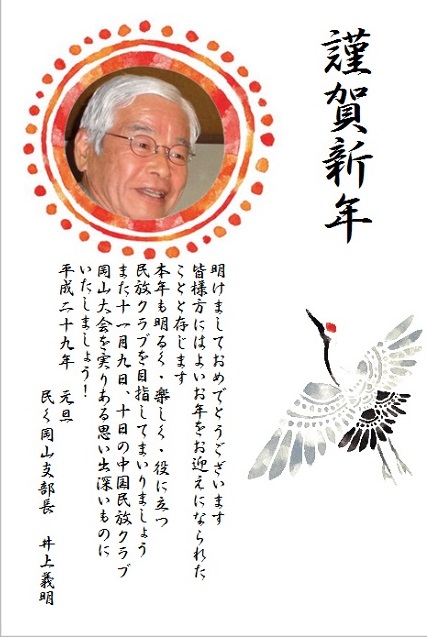 謹賀新年
明けましておめでとうございます
皆様方にはよいお年をお迎えになられた
ことと存じます
本年も明るく・楽しく・役に立つ
民族クラブを目指してまいりましょう
また十一月九日、十日の中国民族クラブ
岡山大会を実りある思い出深いものに
いたしましょう！
平成二十九年　元旦
民く岡山支部長　井上義明